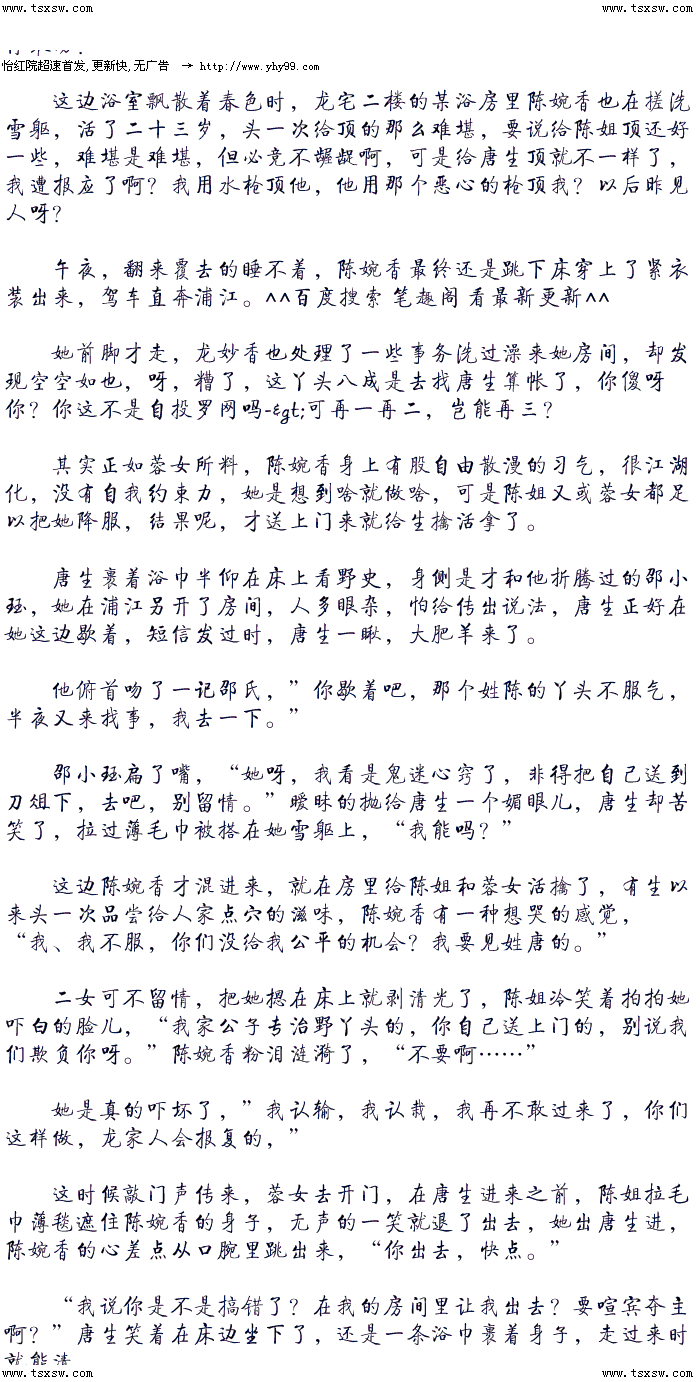 www.tsxsw.com www.tsxsw.com
怡红院超速首发,更新快,无广告 → http://www.yhy99.com
这边浴室飘散着春色时，龙宅二楼的某浴房里陈婉香也在搓洗
雪躯，活了二十三岁，头一次给顶的那么难堪，要说给陈姐顶还好
一些，难堪是难堪，但必竞不龌龊啊，可是给唐生顶就不一样了，
我遭报应了啊？我用水枪顶他，他用那个恶心的枪顶我？以后咋见
人呀？
午夜，翻来覆去的睡不着，陈婉香最终还是跳下床穿上了紧衣
装出来，驾车直奔浦江。^^百度搜索 笔趣阁 看最新更新^^
她前脚才走，龙妙香也处理了一些事务洗过澡来她房间，却发
现空空如也，呀，糟了，这丫头八成是去找唐生算帐了，你傻呀
你？你这不是自投罗网吗-&gt;可再一再二，岂能再三？
其实正如蓉女所料，陈婉香身上有股自由散漫的习气，很江湖
化，没有自我约束力，她是想到啥就做啥，可是陈姐又或蓉女都足
以把她降服，结果呢，才送上门来就给生擒活拿了。
唐生裹着浴巾半仰在床上看野史，身侧是才和他折腾过的邵小
珏，她在浦江另开了房间，人多眼杂，怕给传出说法，唐生正好在
她这边歇着，短信发过时，唐生一瞅，大肥羊来了。
他俯首吻了一记邵氏，”你歇着吧，那个姓陈的丫头不服气，
半夜又来找事，我去一下。”
邵小珏扁了嘴，“她呀，我看是鬼迷心窍了，非得把自己送到
刀俎下，去吧，别留情。”暧昧的抛给唐生一个媚眼儿，唐生却苦
笑了，拉过薄毛巾被搭在她雪躯上，“我能吗？”
这边陈婉香才混进来，就在房里给陈姐和蓉女活擒了，有生以
来头一次品尝给人家点穴的滋味，陈婉香有一种想哭的感觉，
“我、我不服，你们没给我公平的机会？我要见姓唐的。”
二女可不留情，把她摁在床上就剥清光了，陈姐冷笑着拍拍她
吓白的脸儿，“我家公子专治野丫头的，你自己送上门的，别说我
们欺负你呀。”陈婉香粉泪涟漪了，“不要啊……”
她是真的吓坏了，”我认输，我认栽，我再不敢过来了，你们
这样做，龙家人会报复的，”
这时候敲门声传来，蓉女去开门，在唐生进来之前，陈姐拉毛
巾薄毯遮住陈婉香的身子，无声的一笑就退了出去，她出唐生进，
陈婉香的心差点从口腕里跳出来，“你出去，快点。”
“我说你是不是搞错了？在我的房间里让我出去？要喧宾夺主
啊？”唐生笑着在床边坐下了，还是一条浴巾裹着身子，走过来时
就能清
www.tsxsw.com www.tsxsw.com